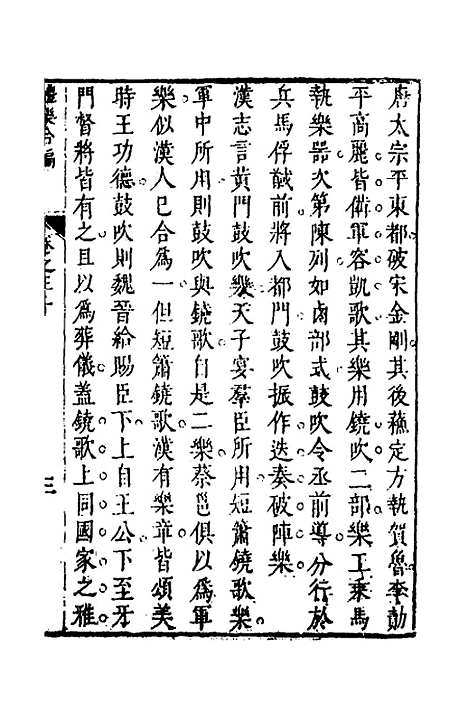 唐太宗平東都破宋金剛其後蘇定方執賀魯李勣
平高麗皆備軍容凱歌其樂用鐃吹二部樂工乘馬
執樂器次第陳列如鹵部式鼓吹令丞前導分行於
兵馬俘馘前將入都門鼓吹振作迭奏破陣樂
漢志言黃門鼓吹樂天子宴羣臣所用短簫鐃歌樂
軍中所用則鼓吹與鐃歌自是二樂蔡邕俱以爲軍
樂似漢人已合爲一但短簫鐃歌漢有樂章皆頌美
時王功德鼓吹則魏晉給賜臣下上自王公下至牙
門督將皆有之且以爲葬儀蓋鐃歌上同國家之雅
禮樂合編
卷之三十
三